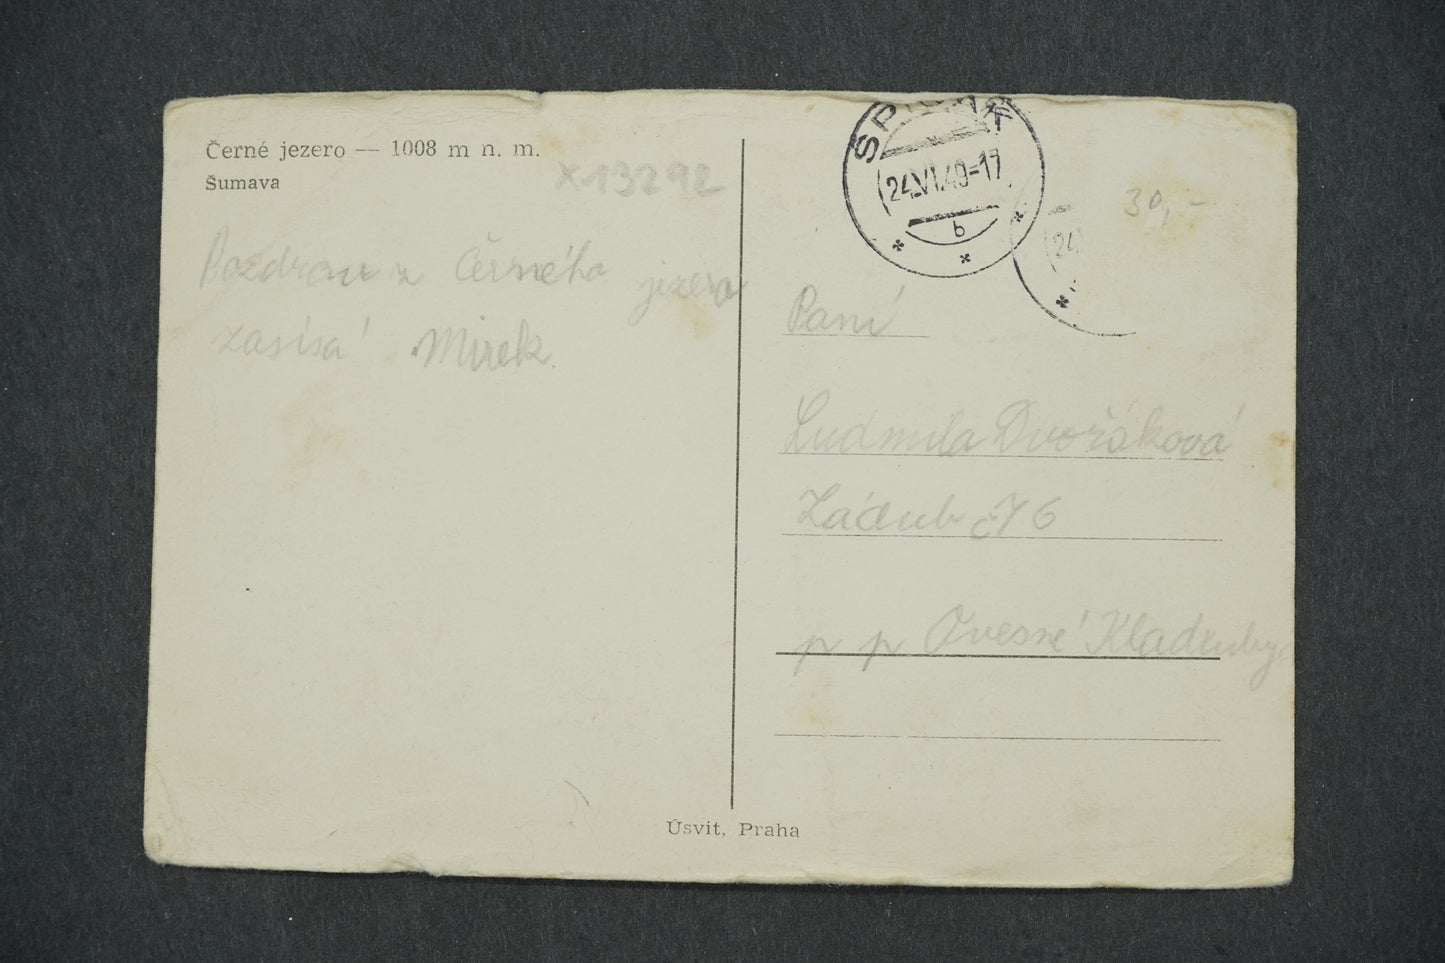 Černé jezero — 1008 m n. m.
Šumava
X13292
Pozdrav z Černého jezera
zasísá Mirek.
ŠPIČÁK
24.VI.49-17
b
24
30,-
Paní
Ludmila Dvořáková
Zádub č 76
p p Ovesné Kladruby
Úsvit, Praha